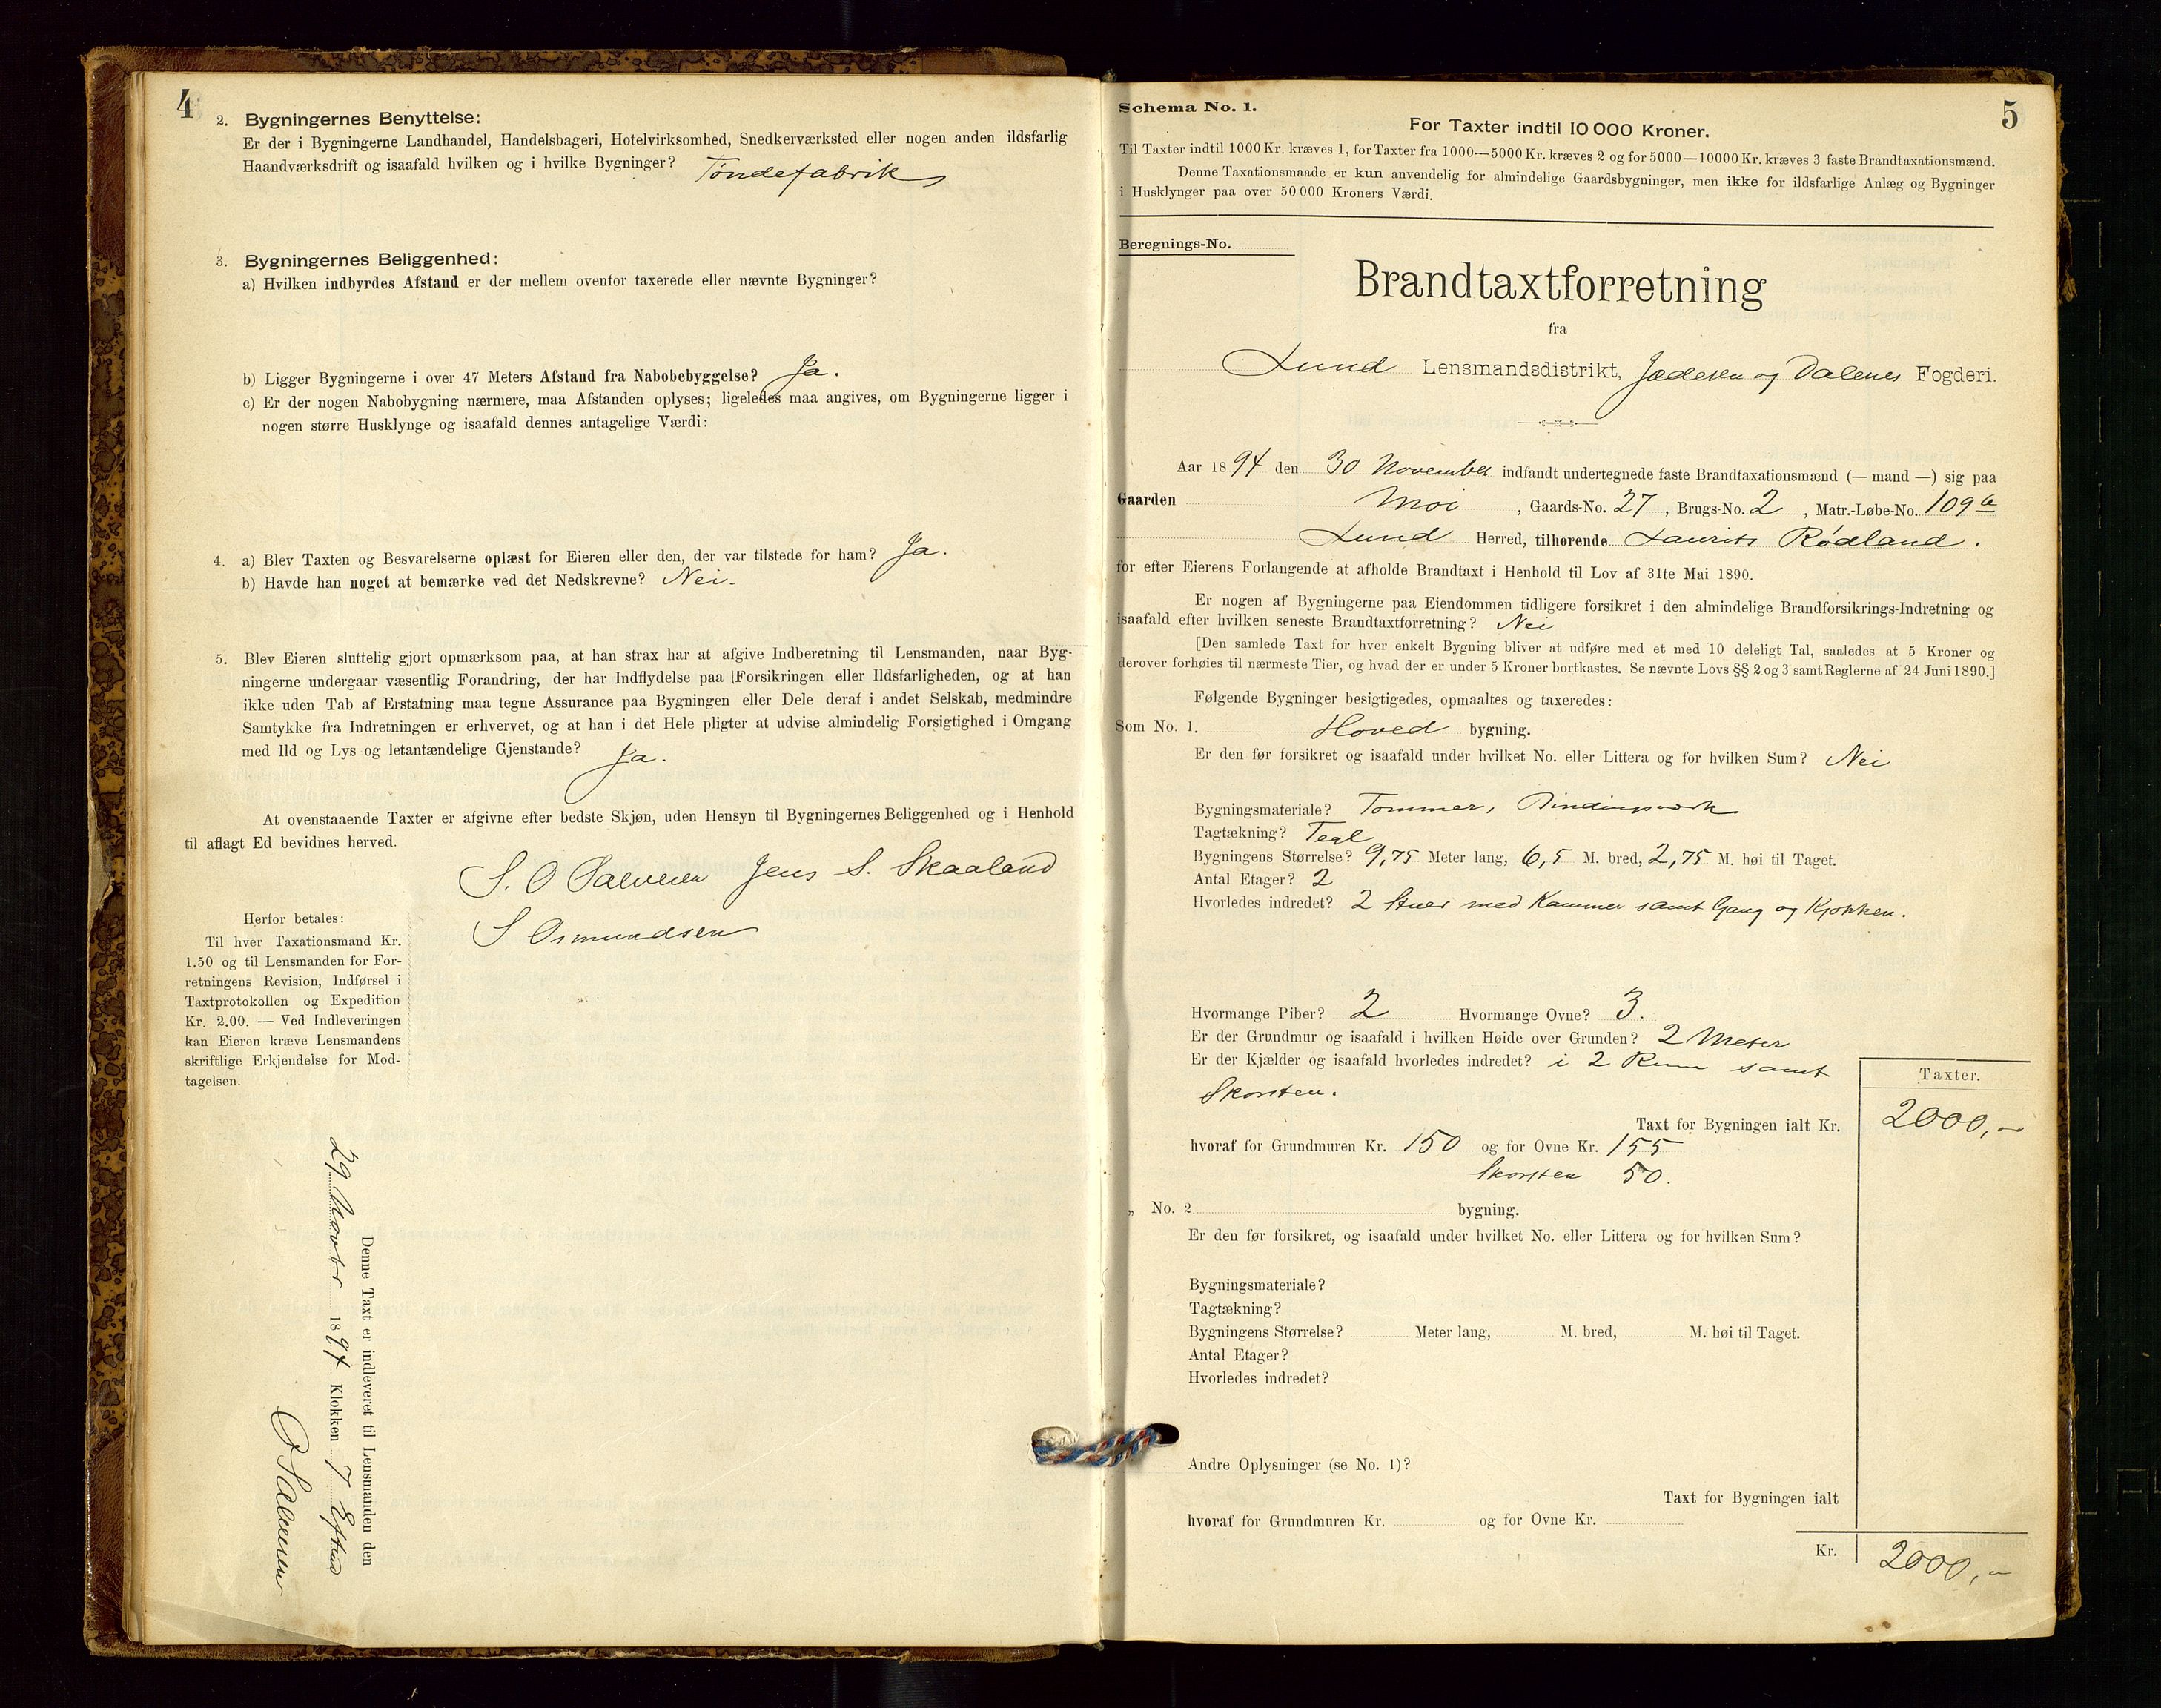 4
2. Bygningernes Benyttelse:
Er der i Bygningerne Landhandel, Handelsbageri, Hotelvirksomhed, Snedkerværksted eller nogen anden ildsfarlig
Haandværksdrift og isaafald hvilken og i hvilke Bygninger? Tøndefabrik
3. Bygningernes Beliggenhed:
a) Hvilken indbyrdes Afstand er der mellem ovenfor taxerede eller nævnte Bygninger?
b) Ligger Bygningerne i over 47 Meters Afstand fra Nabobebyggelse? Ja.
c) Er der nogen Nabobygning nærmere, maa Afstanden oplyses; ligeledes maa angives, om Bygningerne ligger i
nogen større Husklynge og isaafald dennes antagelige Værdi:
4. a) Blev Taxten og Besvarelserne oplæst for Eieren eller den, der var tilstede for ham? Ja.
b) Havde han noget at bemærke ved det Nedskrevne? Nei.
5. Blev Eieren sluttelig gjort opmærksom paa, at han strax har at afgive Indberetning til Lensmanden, naar Byg-
ningerne undergaar væsentlig Forandring, der har Indflydelse paa Forsikringen eller Ildsfarligheden, og at han
ikke uden Tab af Erstatning maa tegne Assurance paa Bygningen eller Dele deraf i andet Selskab, medmindre
Samtykke fra Indretningen er erhvervet, og at han i det Hele pligter at udvise almindelig Forsigtighed i Omgang
med Ild og Lys og letantændelige Gjenstande? Ja.
At ovenstaaende Taxter er afgivne efter bedste Skjøn, uden Hensyn til Bygningernes Beliggenhed og i Henhold
til aflagt Ed bevidnes herved.
S. O Salvesen Jens S. Skaaland
S Osmundsen
Herfor betales:
Til hver Taxationsmand Kr.
1.50 og til Lensmanden for For-
retningens Revision, Indførsel i
Taxtprotokollen og Expedition
Kr. 2.00. — Ved Indleveringen
kan Eieren kræve Lensmandens
skriftlige Erkjendelse for Mod-
tagelsen.
Denne Taxt er indleveret til Lensmanden den
29 Novbr 1894 Klokken 7 Eftmd
5
Schema No. 1.
For Taxter indtil 10 000 Kroner.
Til Taxter indtil 1000 Kr. kræves 1, for Taxter fra 1000—5000 Kr. kræves 2 og for 5000—10000 Kr. kræves 3 faste Brandtaxationsmænd.
Denne Taxationsmaade er kun anvendelig for almindelige Gaardsbygninger, men ikke for ildsfarlige Anlæg og Bygninger
i Husklynger paa over 50 000 Kroners Værdi.
Beregnings-No.
Brandtaxtforretning
fra
Lund Lensmandsdistrikt, Jæderen og Dalenes Fogderi.
Aar 1894 den 30 November indfandt undertegnede faste Brandtaxationsmænd (— mand —) sig paa
Gaarden Moi , Gaards-No. 27 , Brugs-No. 2 , Matr.-Løbe-No. 109
Lund Herred, tilhørende Laurits Rødland .
for efter Eierens Forlangende at afholde Brandtaxt i Henhold til Lov af 31te Mai 1890.
Er nogen af Bygningerne paa Eiendommen tidligere forsikret i den almindelige Brandforsikrings-Indretning og
isaafald efter hvilken seneste Brandtaxtforretning? Nei
[Den samlede Taxt for hver enkelt Bygning bliver at udføre med et med 10 deleligt Tal, saaledes at 5 Kroner og
derover forhøies til nærmeste Tier, og hvad der er under 5 Kroner bortkastes. Se nævnte Lovs §§ 2 og 3 samt Reglerne af 24 Juni 1890.]
Følgende Bygninger besigtigedes, opmaaltes og taxeredes:
Som No. 1. Hoved bygning.
Er den før forsikret og isaafald under hvilket No. eller Littera og for hvilken Sum? Nei
Bygningsmateriale? Tømmer, Bindingsværk
Tagtækning? Tegl
Bygningens Størrelse? 9,75 Meter lang, 6,5 M. bred, 2,75 M. høi til Taget.
Antal Etager? 2
Hvorledes indredet? 2 Stuer med Kammer samt Gang og Kjøkken.
Hvormange Piber? 2 Hvormange Ovne? 3.
Er der Grundmur og isaafald i hvilken Høide over Grunden? 2 Meter
Er der Kjælder og isaafald hvorledes indredet? i 2 Rum samt
Skorsten.
Taxter.
Taxt for Bygningen ialt Kr. 2000,—
hvoraf for Grundmuren Kr. 150 og for Ovne Kr. 155
Skorsten 50.
„ No. 2. bygning.
Er den før forsikret, og isaafald under hvilket No. eller Littera og for hvilken Sum?
Bygningsmateriale?
Tagtækning?
Bygningens Størrelse? Meter lang, M. bred, M. høi til Taget.
Antal Etager?
Hvorledes indredet?
Andre Oplysninger (se No. 1)?
Taxt for Bygningen ialt
hvoraf for Grundmuren Kr. og for Ovne Kr.
Kr. 2000,—